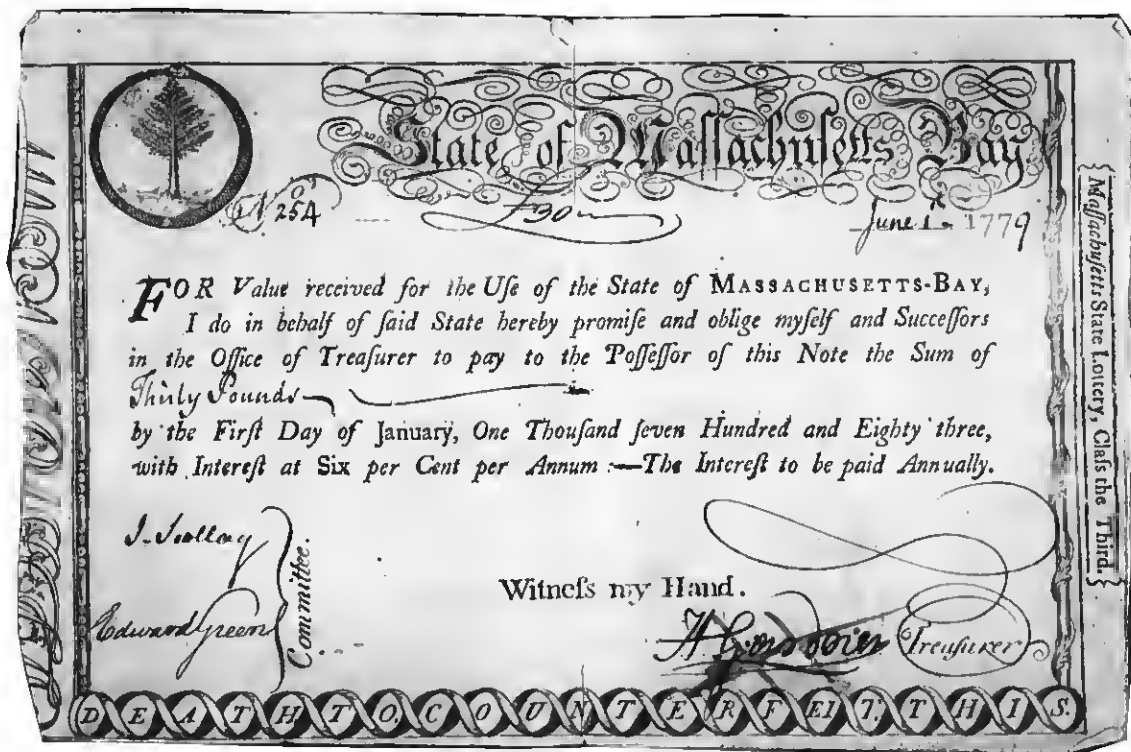 State of Maſſachuſetts Bay
No 254 £30 June 1st 1779
FOR Value received for the Uſe of the State of MASSACHUSETTS-BAY,
I do in behalf of ſaid State hereby promiſe and oblige myſelf and Succeſſors
in the Office of Treaſurer to pay to the Poſſeſſor of this Note the Sum of
Thirty Pounds
by the Firſt Day of January, One Thouſand ſeven Hundred and Eighty three,
with Intereſt at Six per Cent per Annum :—The Intereſt to be paid Annually.
J. Scollay
Edward Green
Committee.
Witneſs my Hand.
Treaſurer
DEATH TO. COUNTERFEIT. THIS.
Maſſachuſetts State Lottery, Claſs the Third.